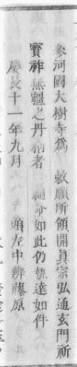 參河國大樹寺爲 敕願所領開眞宗弘通玄門祈
寳祚無疆之丹精者 綸命如此仍執達如件
慶長十一年九月 頭左中辨藤原